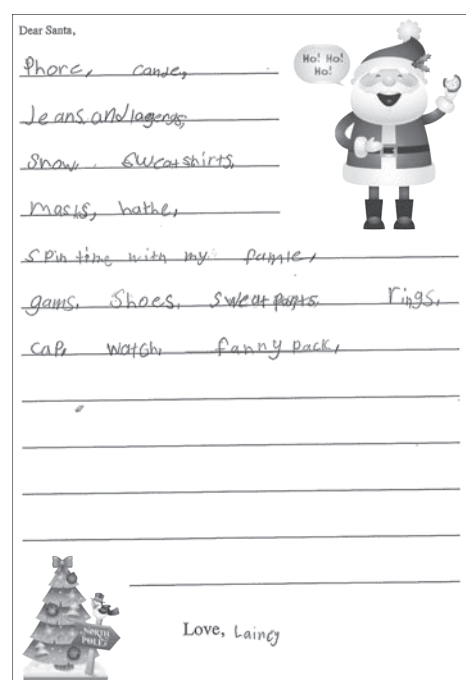 Dear Santa,
Ho! Ho!
Ho!
Phore, cande,
Jeans and lagengs,
Snow, sweatshirts,
masks, hathe,
spin time with my famle,
gams, Shoes, sweatpants, rings,
cap, watch, fanny pack,
NORTH
POLE
Love, Laincy